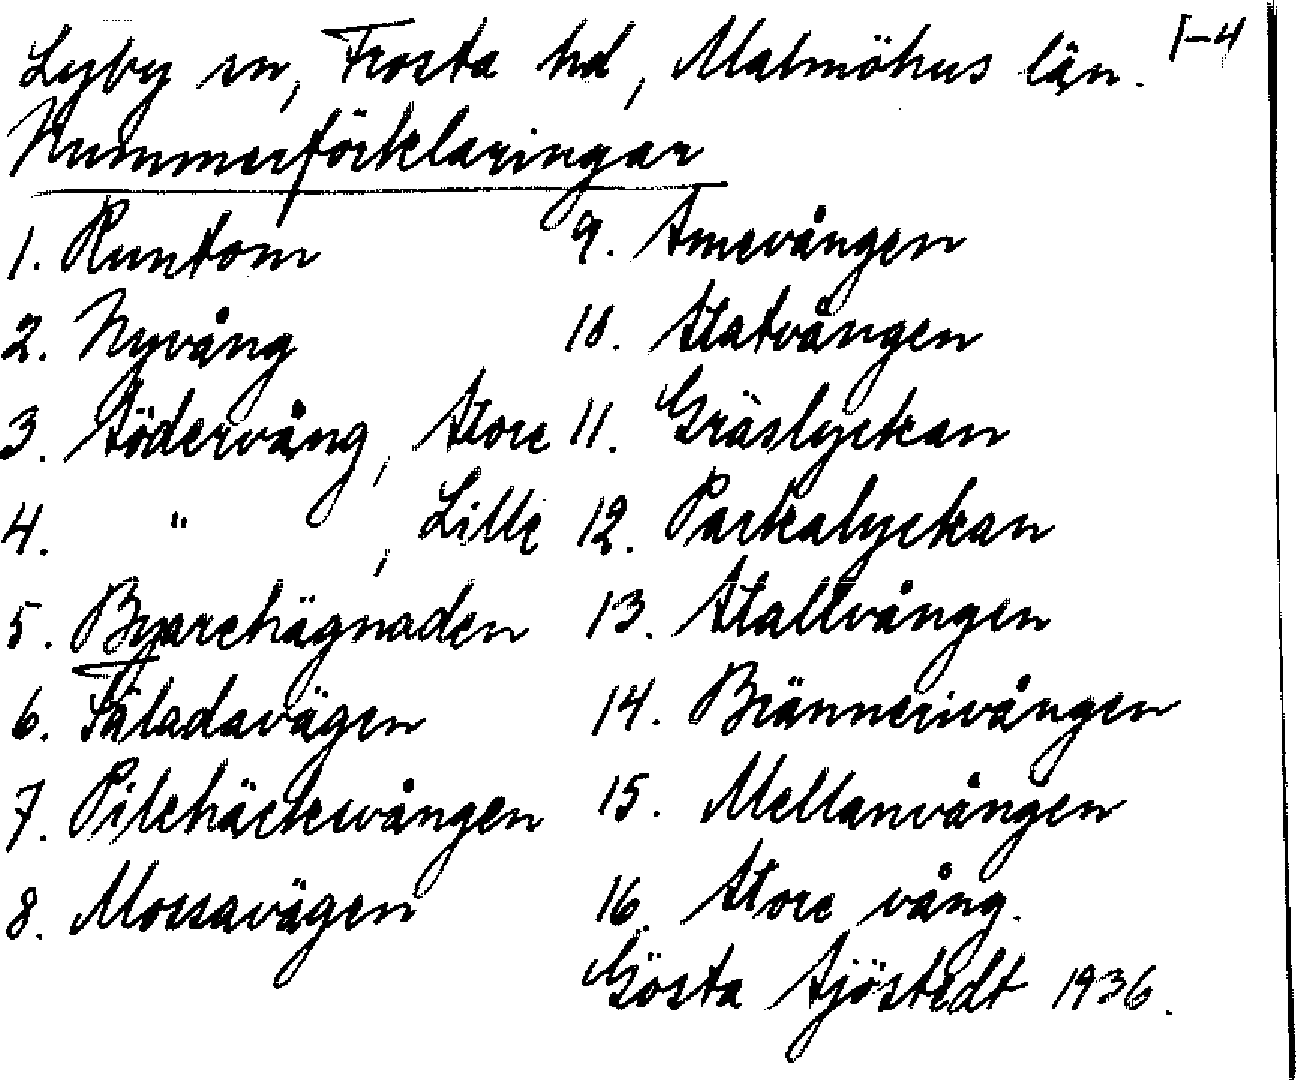 Lyby sn, Frosta hd, Malmöhus län. I-4
Nummerförklaringar
1. Runtom
2. Nyvång
3. Södervång, Store
4. " , Lille
5. Byarehägnaden
6. Fäladavägen
7. Pilehäckevången
8. Mossavägen
9. Amevången
10. Statvången
11. Gräslyckan
12. Parkalyckan
13. Stallvången
14. Brännerivången
15. Mellanvången
16. Store vång.
Gösta Sjöstedt 1936.